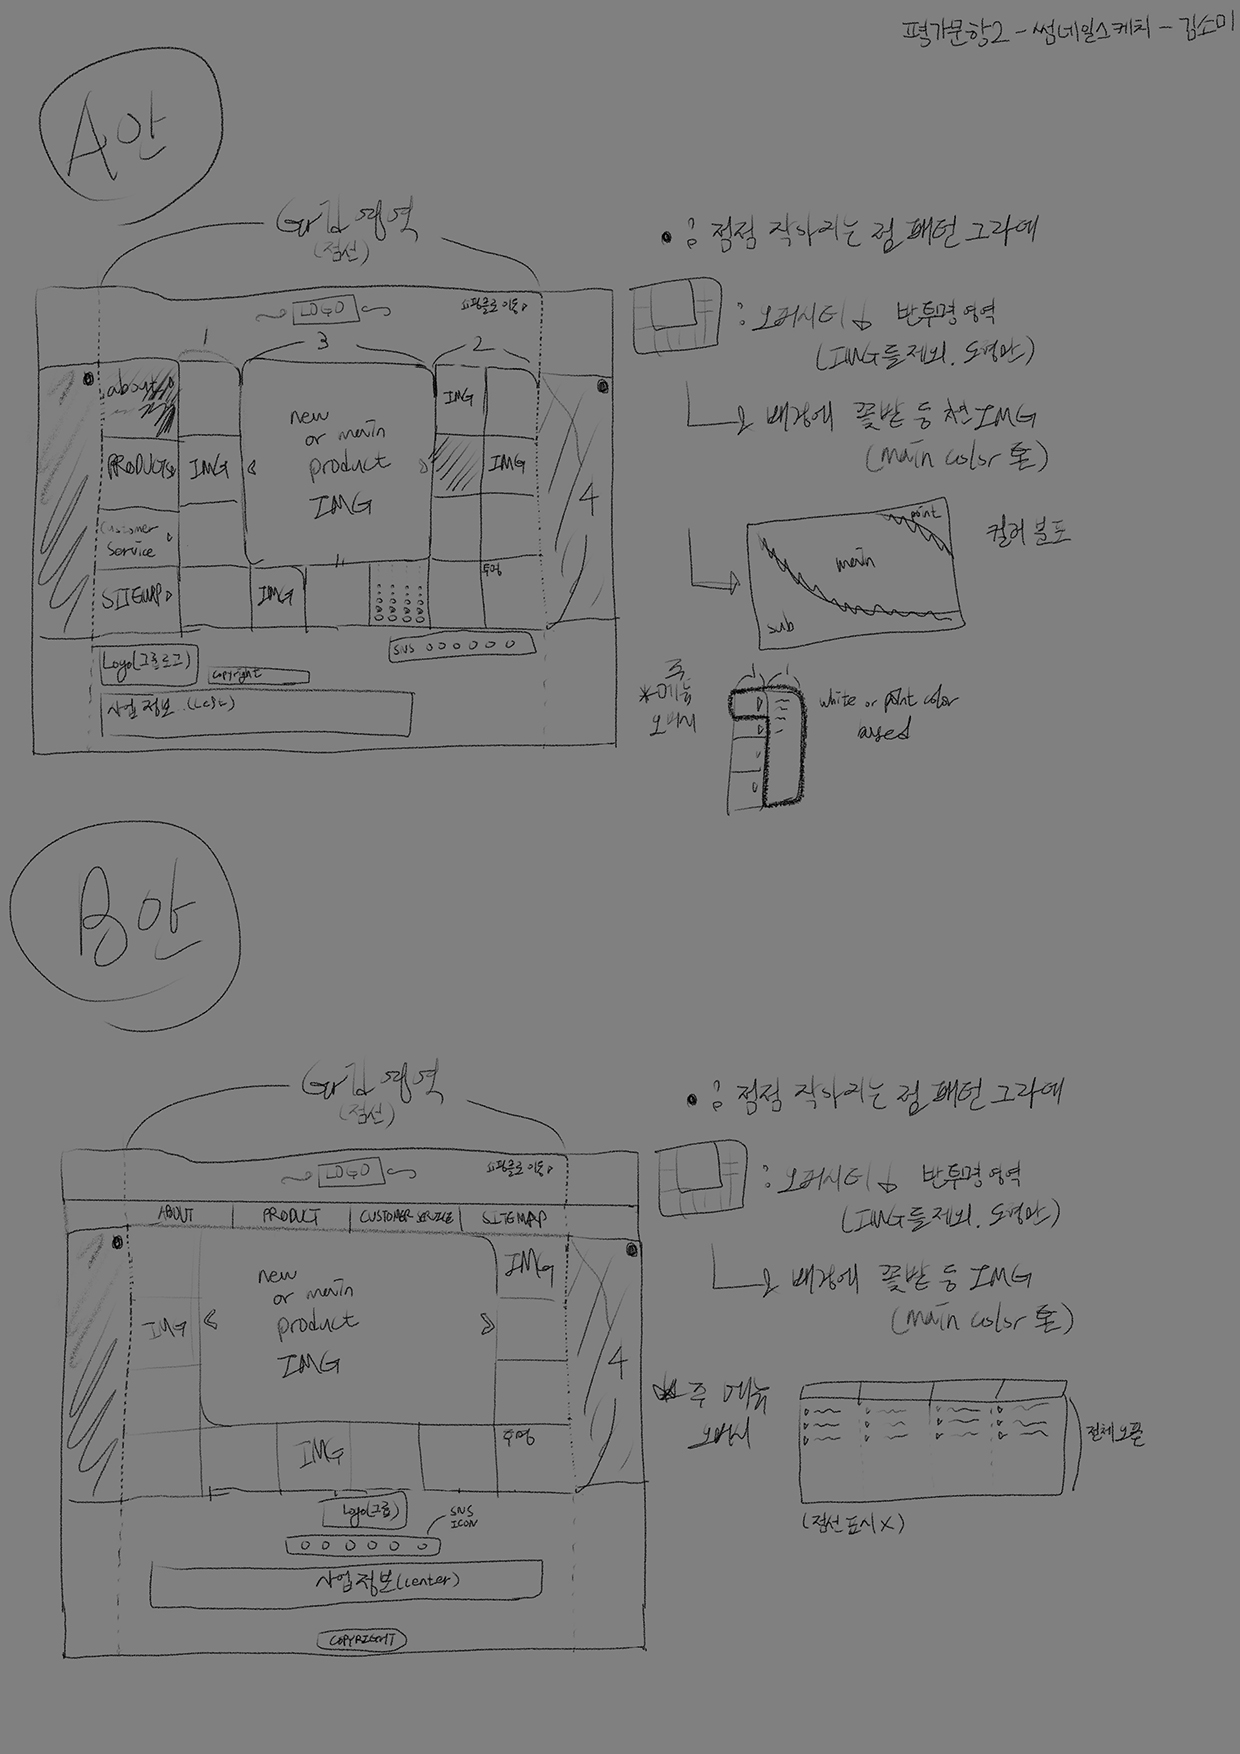 평가문항2 - 썸네일스케치 - 김소미
A안
Grid 영역
(점선)
LOGO
쇼핑몰로 이동
1
3
2
about
PRODUCTS
Customer
Service
SITEMAP
IMG
new
or main
product
IMG
IMG
IMG
IMG
투명
4
Logo(그룹로고)
copyright
SNS
사업정보 (Left)
: 점점 작아지는 점 패턴 그라데
: 오퍼시티 반투명영역
(IMG들 제외. 도형만)
배경에 꽃밭 등 천 IMG
(main color 톤)
point
main
sub
컬러 분포
주
*메뉴
오버시
white or point color
based
B안
Grid 영역
(점선)
LOGO
쇼핑몰로 이동
ABOUT
PRODUCT
CUSTOMER SERVICE
SITEMAP
IMG
new
or main
product
IMG
IMG
IMG
투명
4
Logo(그룹)
SNS
ICON
사업정보(center)
COPYRIGHT
: 점점 작아지는 점 패턴 그라데
: 오퍼시티 반투명영역
(IMG들 제외. 도형만)
배경에 꽃밭 등 IMG
(main color 톤)
주 메뉴
오버시
전체오픈
(점선표시X)